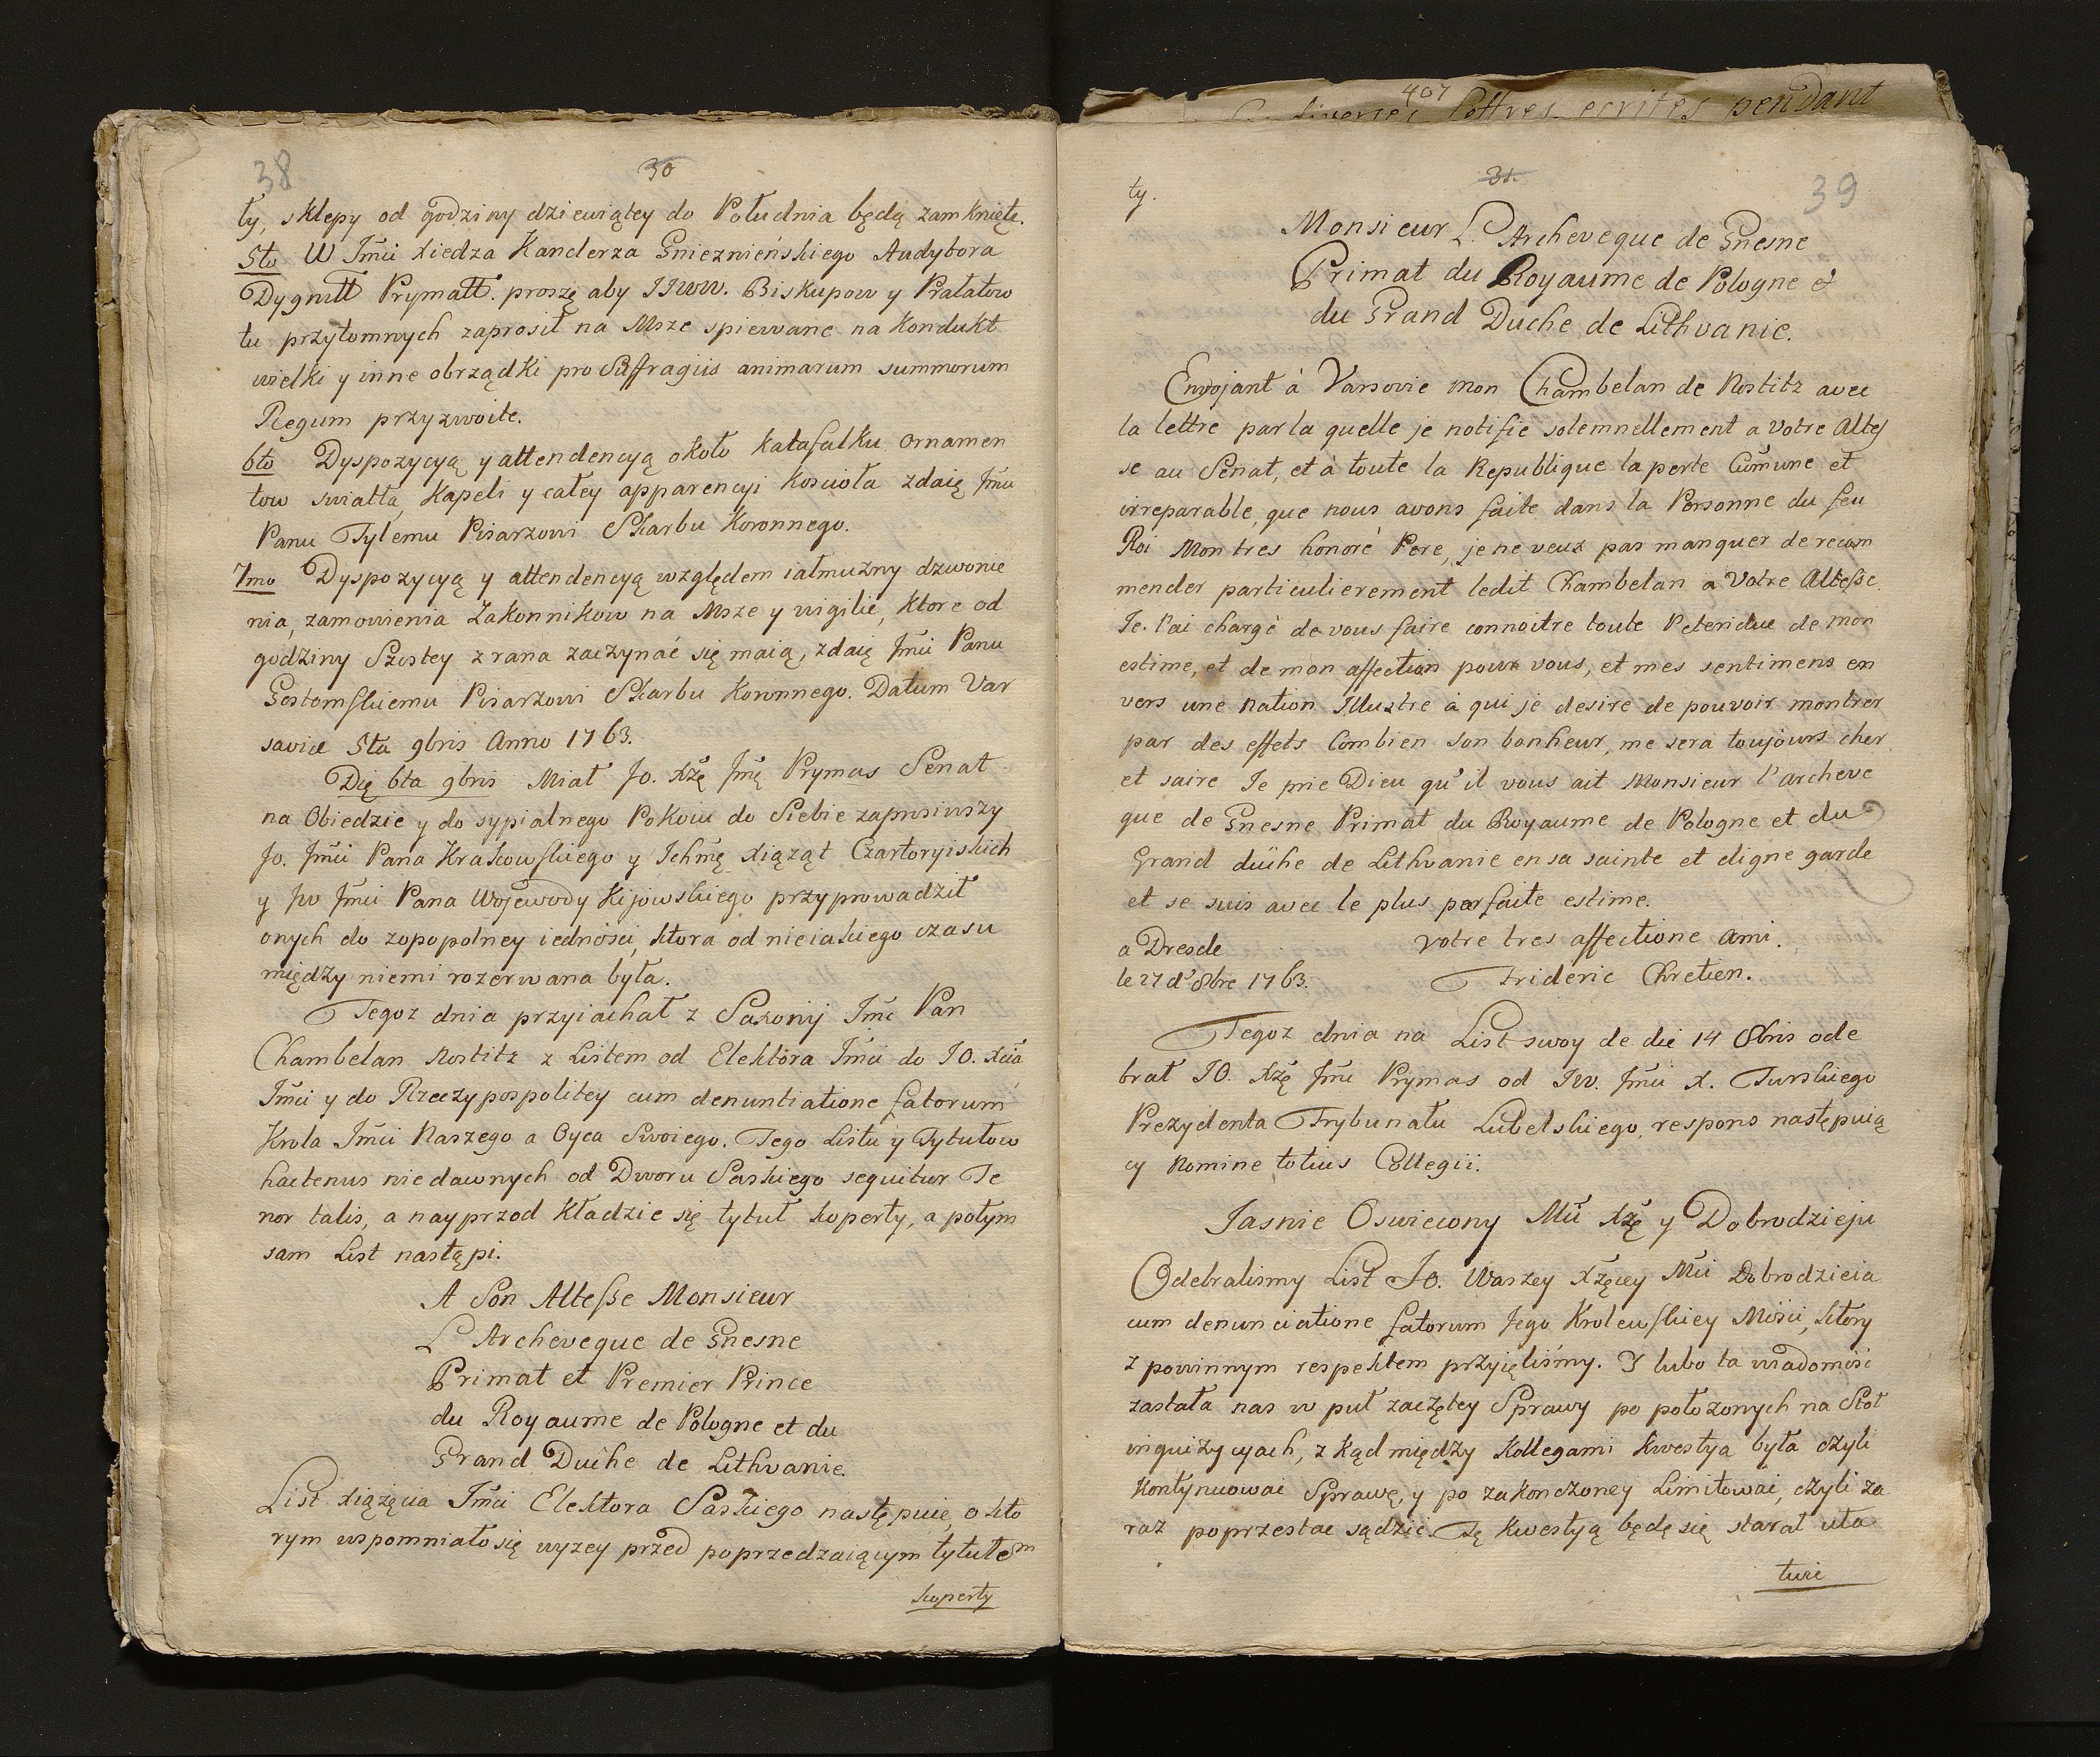 38
30
ły, sklepy od godziny dziewiątey do Południa będą zamknięte.
5to W Jmći Xiedza Kanclerza Gnieznieńskiego Audytora
Dygnitt Prymatt. proszę aby JJWW. Biskupow y Prałatow
tu przytomnych zaprosił na Msze spiewane na Kondukt
wielki y inne obrządki pro Suffragiis animarum summorum
Regum przyzwoite.
6to Dyspozycyą y attendencyą około katafalku Ornamen
tow swiatła, Kapeli y całey apparencyi Koscioła zdaię Jmći
Panu Tylemu Pisarzowi Skarbu Koronnego.
7mo Dyspozycyą y attendencyą względem iałmużny dzwonie
nia, zamowienia Zakonnikow na Msze y wigilie, ktore od
godziny Szostey z rana zaczynać się maią, zdaię Jmći Panu
Gostomskiemu Pisarzowi Skarbu Koronnego. Datum Var
saviæ 5ta 9bris Anno 1763.
Dię 6ta 9bris Miał Jo. Xżę Jmć Prymas Senat
na Obiedzie y do sypialnego Pokoiu do Siebie zaprosiwszy
Jo. Jmći Pana Krakowskiego y Ichmć Xiążąt Czartoryiskich
y Jw Jmći Pana Wojewody Kijowskiego przyprowadził
onych do zopopolney iedności, ktora od nieiakiego czasu
między niemi rozerwana była.
Tegoz dnia przyiachał z Saxonij Jmć Pan
Chambelan Nostitz z Listem od Elektora Jmći do JO. Xcia
Jmći y do Rzeczypospolitey cum denuntiatione fatorum
Krola Jmći Naszego a Oyca Swoiego. Tego Listu y Tytułow
hactenus niedawnych od Dworu Saskiego sequitur Te
nor talis, a nayprzod kładzie się tytuł koperty, a potym
sam List nastąpi.
A Son Altesse Monsieur
L'Archeveque de Gnesne
Primat et Premier Prince
du Royaume de Pologne et du
Grand Duché de Lithvanie.
List Xiążęcia Jmći Elektora Saskiego następuię, o kto
rym wspomniało się wyzey przed poprzedzaiącym tytułem
koperty
407
lettres ecrites pendant
31.
39
ty.
Monsieur L'Archeveque de Gnesne
Primat du Royaume de Pologne et
du Grand Duche de Lithvanie.
Envojant à Varsovie mon Chambelan de Nostitz avec
la lettre par la quelle je notifie solemnellement a votre Altes
se au Senat, et à toute la Republique la perte Comune et
irreparable, que nous avons faite dans la Personne du feu
Roi Mon tres honoré Pere, je ne veux pas manquer de recom
mender particulierement ledit Chambelan a Votre Altesse.
Je l'ai chargé de vous faire connoitre toute l'etendue de mon
estime, et de mon affection pour vous, et mes sentimens en
vers une nation Illustre à qui je desire de pouvoir montrer
par des effets Combien son bonheur, me sera toujours cher
et saire Je prie Dieu qu'il vous ait Monsieur l'archeve
que de Gnesne Primat du Royaume de Pologne et du
Grand duche de Lithvanie en sa sainte et digne garde
et se suis avec le plus parfaite estime.
a Dresde votre tres affectione Ami.
le 27 d'8bre 1763. Frideric Chretien.
Tegoz dnia na List swoy de die 14 8bris ode
brał JO. Xżę Jmć Prymas od Jw. Jmći X. Turskiego
Prezydenta Trybunału Lubelskiego, respons następuią
cy Nomine totius Collegii.
Jasnie Oswiecony Mći Xżę y Dobrodzieju
Odebralismy List Jo. Waszey Xżęcey Mći Dobrodzieia
cum denunciatione fatorum Jego Krolewskiey Mości, ktory
z powinnym respektem przyięliśmy. I lubo ta wiadomość
zastała nas w puł zaczętey Sprawy po położonych na Stoł
inquizycyach, z kąd między Kollegami kwestya była czyli
kontynuować Sprawę, y po zakonczoney Limitować, czyli za
raz poprzestać sądzić. Tę kwestyą będę się starał uła
twić